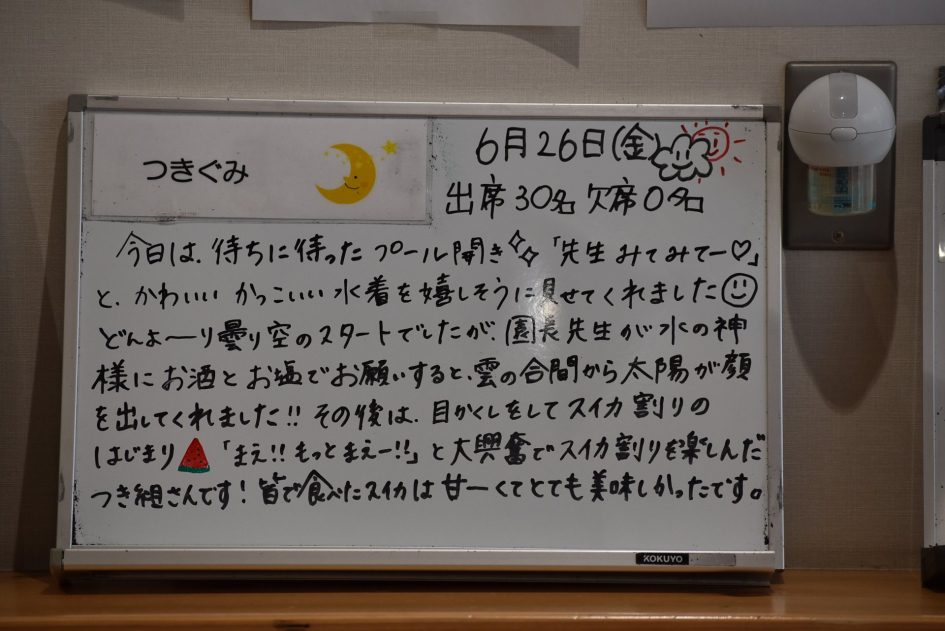 つきぐみ
6月26日(金)
出席30名 欠席0名
今日は、待ちに待った プール開き「先生 みてみてー♡」
と、かわいい かっこいい 水着を嬉しそうに見せてくれました
どんよ〜り曇り空のスタートでしたが、園長先生が水の神
様にお酒とお塩でお願いすると、雲の合間から太陽が顔
を出してくれました!! その後は、目かくしをしてスイカ割りの
はじまり「まえ!!もっとまえー!!」と大興奮でスイカ割りを楽しんだ
つき組さんです！皆で食べたスイカは甘ーくてとても美味しかったです。
KOKUYO